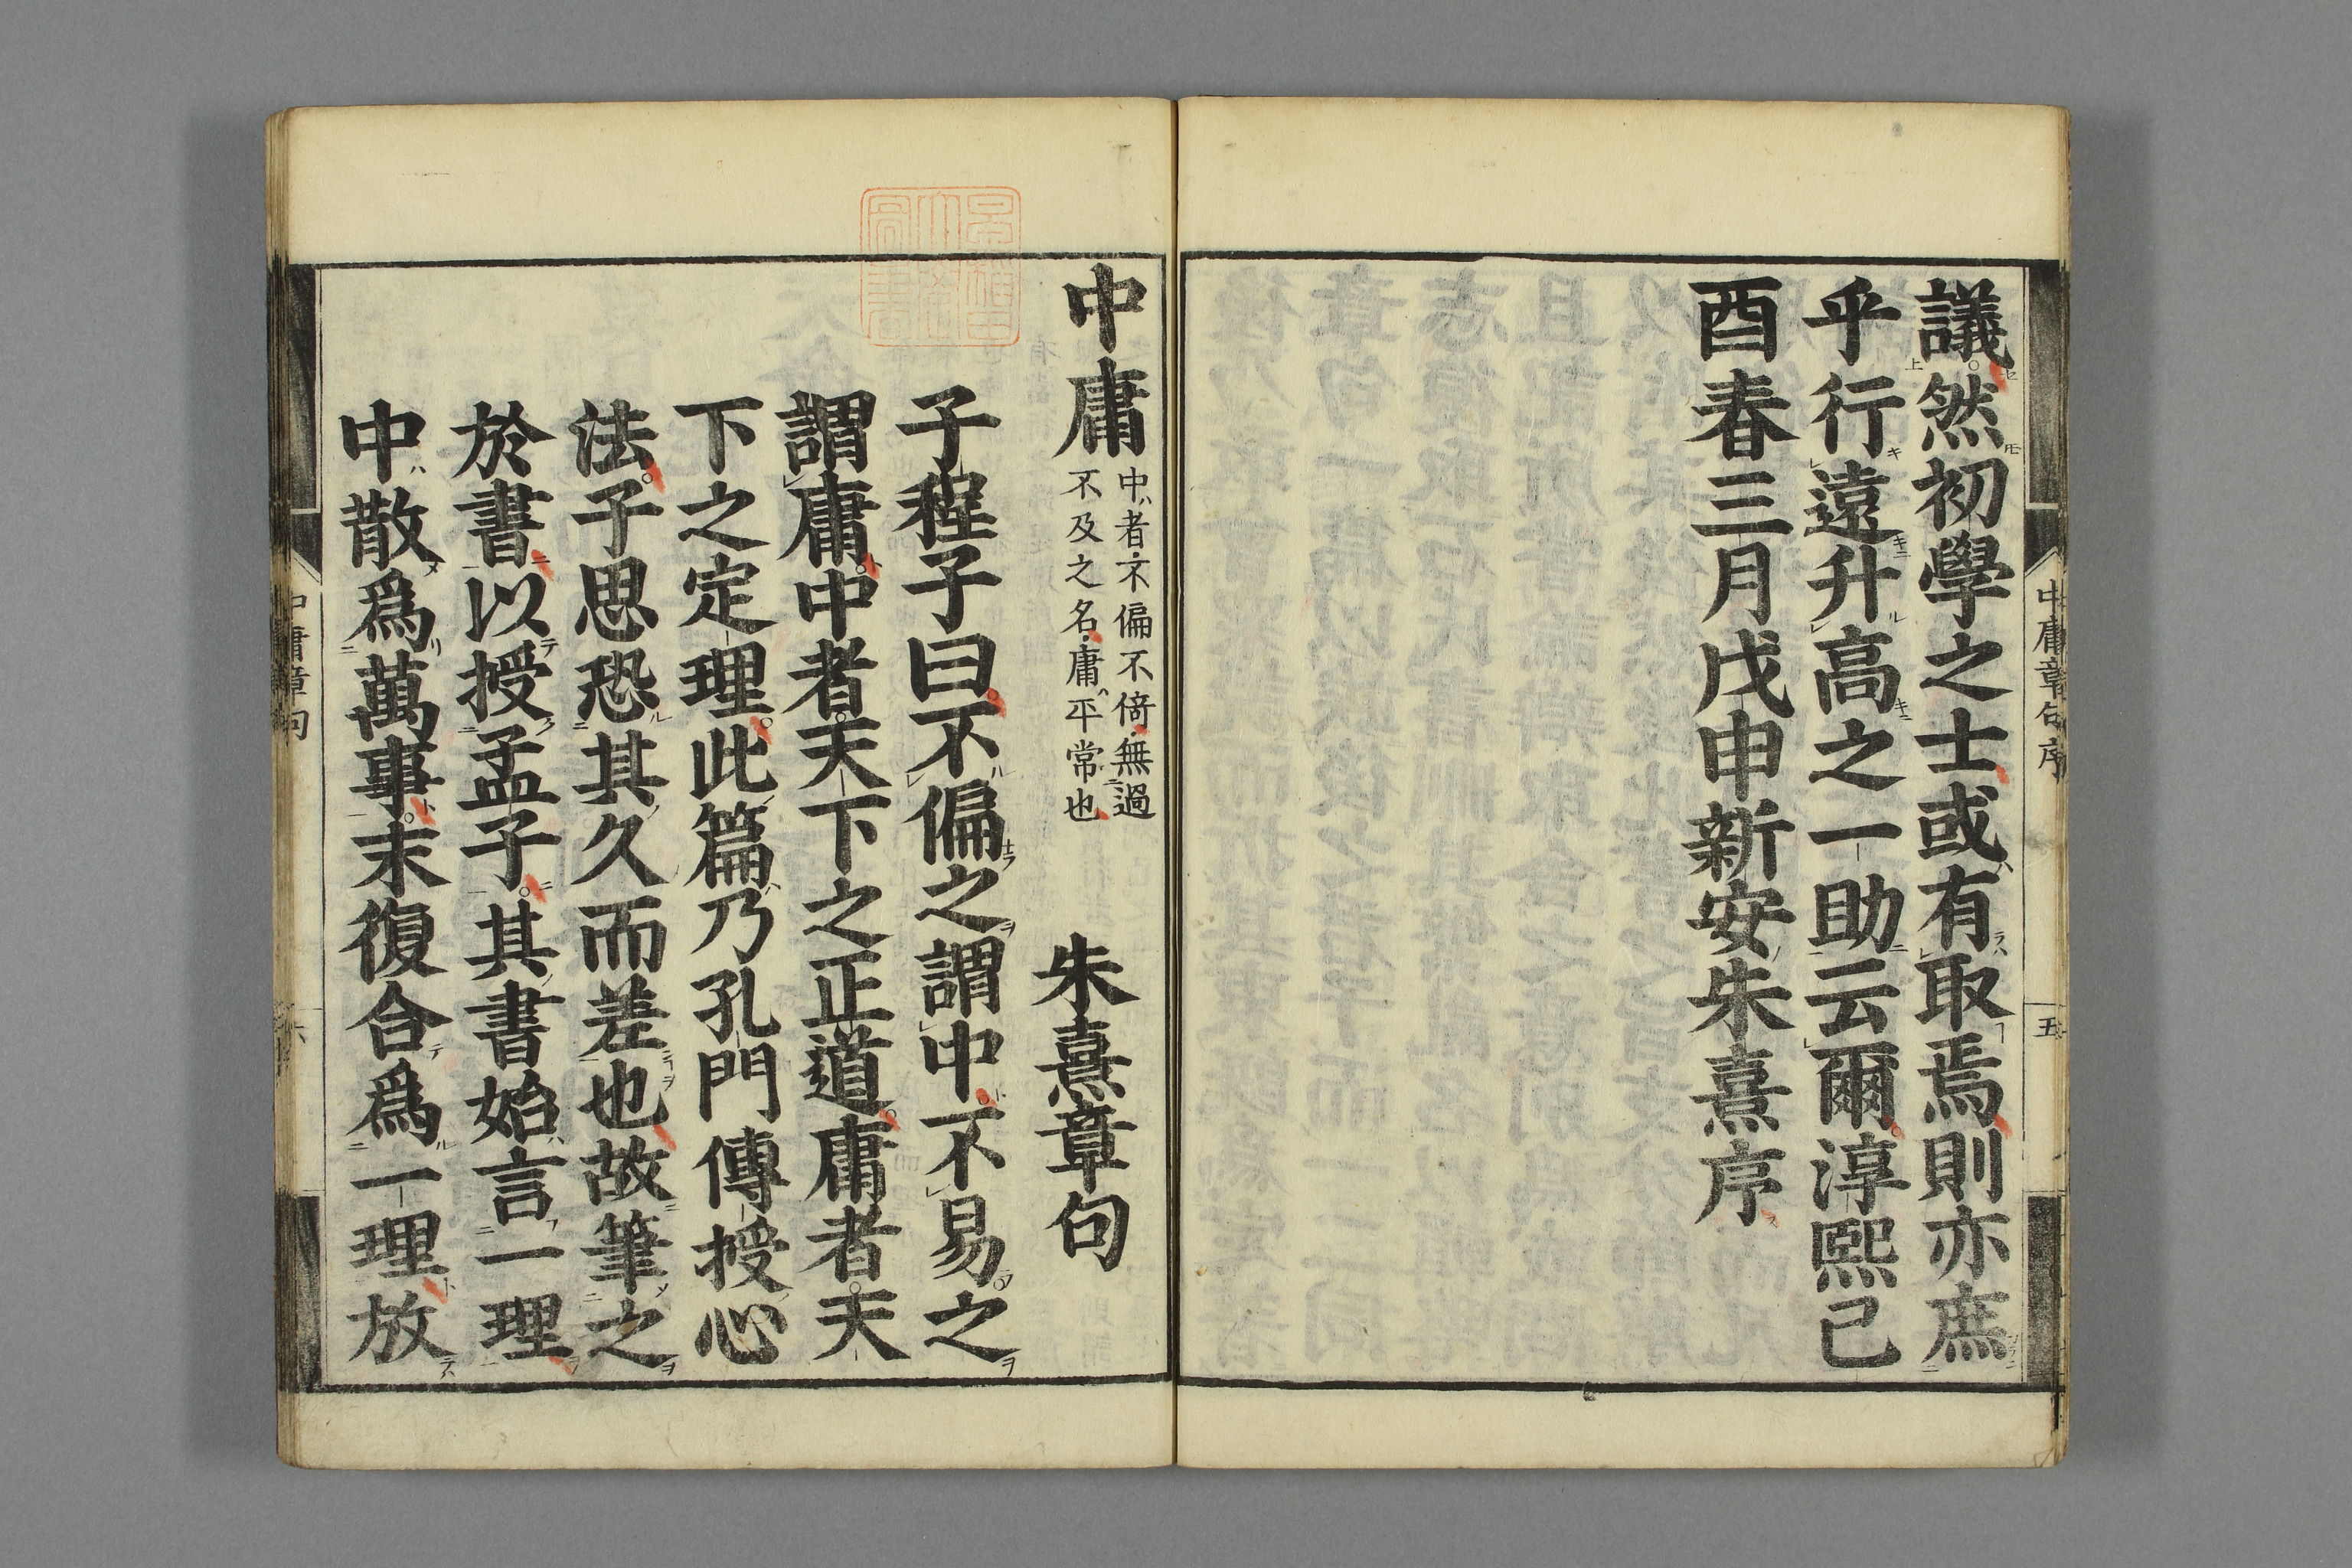 議然初學之士或有取焉則亦庶
乎行遠升高之一助云爾淳熙己
酉春三月戊申新安朱熹序
中庸章句序
五
中庸
中者不偏不倚無過
不及之名庸平常也
朱熹章句
子程子曰不偏之謂中不易之
謂庸中者天下之正道庸者天
下之定理此篇乃孔門傳授心
法子思恐其久而差也故筆之
於書以授孟子其書始言一理
中散爲萬事末復合爲一理放
中庸章句
六